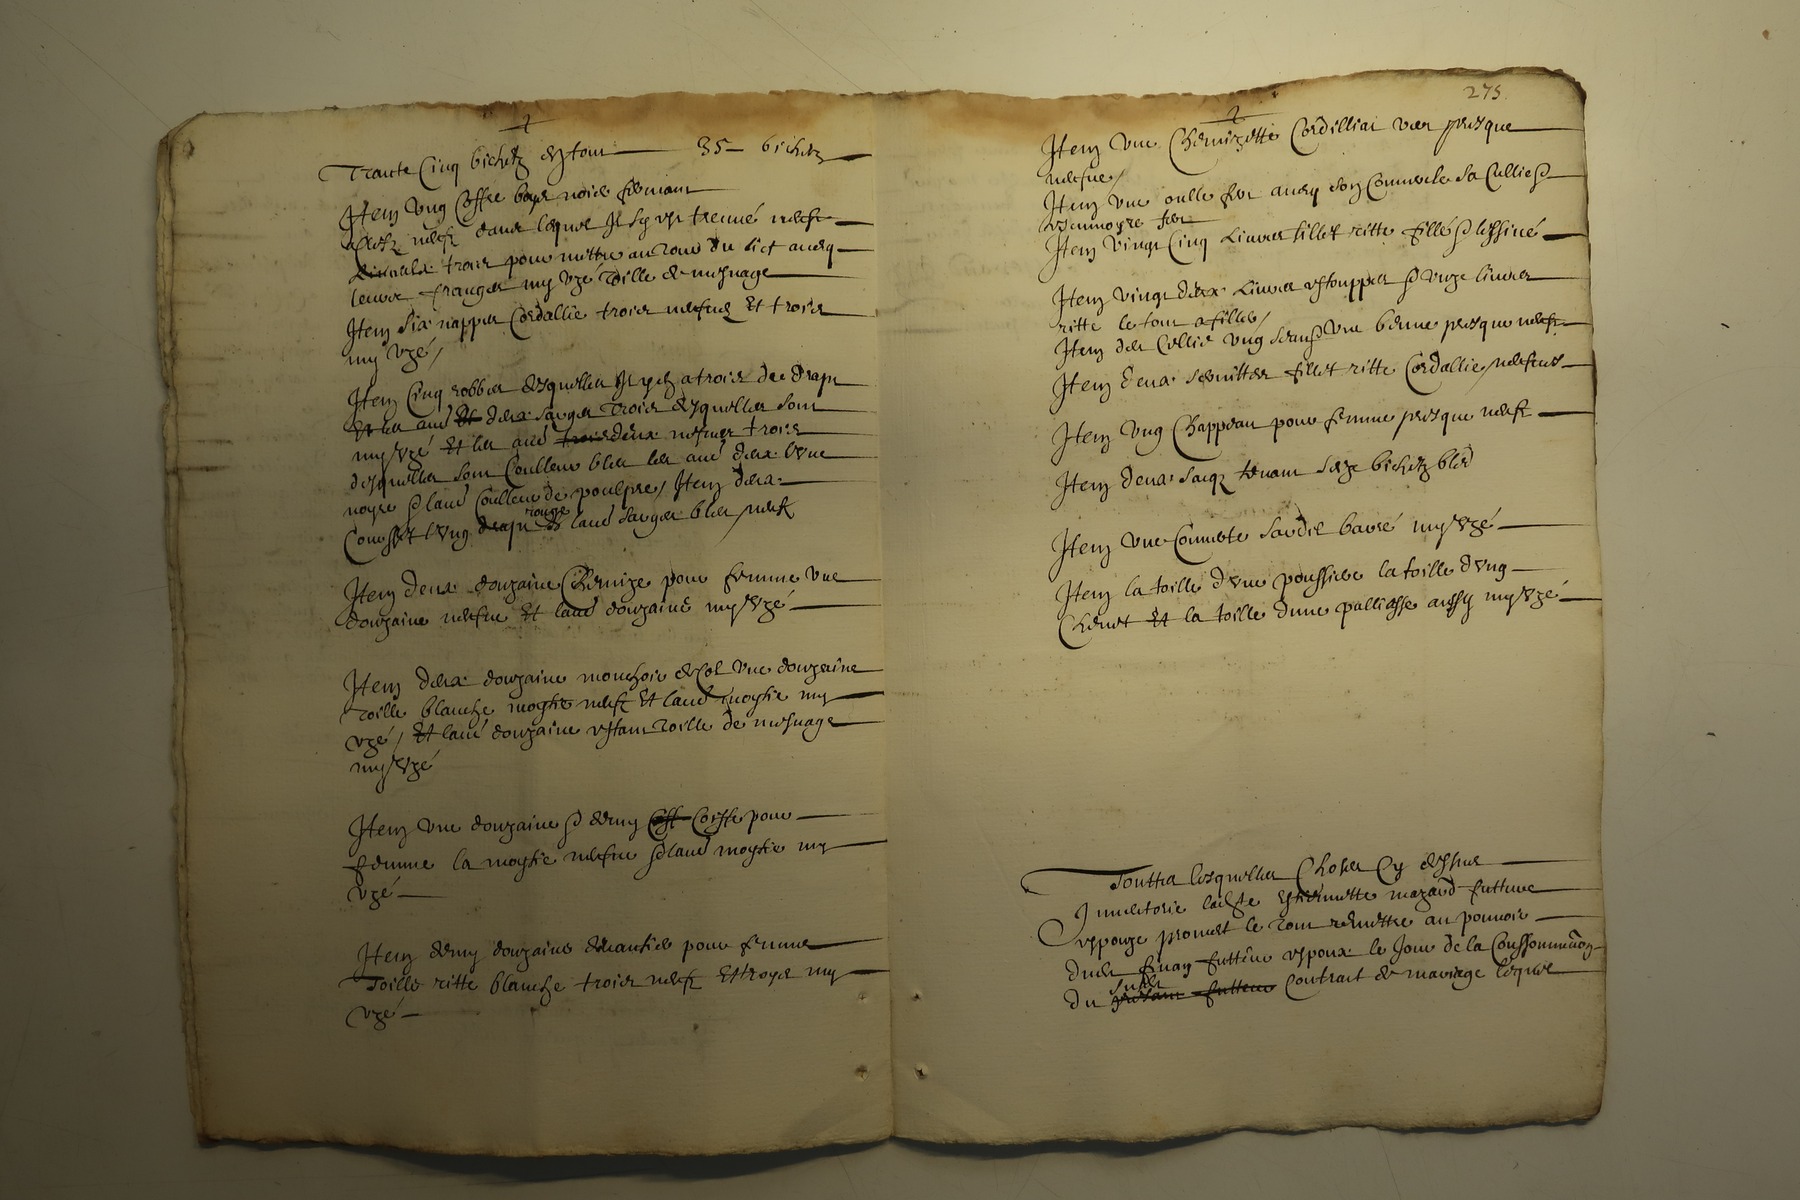 Trante Cinq bichetz et tout 35 bichetz
Item Vng Coffre boys noier fermant
a Clefz neufz dans lequel Il sy est treuué neufz
Linceulx trois pour mettre au tour du lict auecq
leurs franges my vzé toille de mesnage
Item Six nappes Cordallie trois neufues Et trois
my vzé /
Item Cinq robbes desquelles Il y en a trois de drapt
Et les aues Et deux sarges trois desquelles sont
my vzé Et les aues trois deux nefues trois
desquelles sont Coulleur bleu les aues deux l'vne
noyre et laue Coulleur de poulpre / Item deux
rouge
l'vng drapt et laue sarges bleu / neufz
Item deux douzaine Chemize pour femme vne
douzaine neufue Et laue douzaine my vzé
Item deux douzaine mouchoir de Col vne douzaine
toille blanche moytié neufz Et laue moytié my
vzé / Et laue douzaine estant toille de mesnage
my vzé
Item vne douzaine et demy Coiffe pour
femme la moytié neufue et laue moytié my
vzé
Item demy douzaine deuantier pour femme
Toille ritte blanche trois neufz Et troys my
vzé
275
Item vne Chemizette Cordilliat vert presque
nefue /
Item vne oulle fer auecq son Couuercle sa Cullier et
fer
Item vingt Cinq Liures fillet ritte fillé et lessiué
Item vingt deux Liures estouppes et vnze liures
ritte le tout a filler /
Item vng et vne benne presque neufz
Item deux fillet ritte Cordallie / neufues
Item vng Chappeau pour femme presque neufz
Item deux sacqz tenant seize bichetz bled
Item vne Couuerte barré my vzé
Item la toille d'vne poussiere la toille d'vng
Cheuet Et la toille dune palliasse aussy my vzé
Touttes lesquelles Choses Cy dessus
Inuentorié laditte Estiennette mazard futture
espouze promet le tout remettre au pouuoir
dudit futteur espoux le Jour de la Conssommaon
susdit
du futteur Contract de mariage lequel